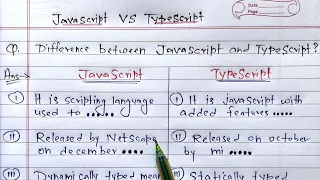 JavaScript VS TypeScript
Date
Page
Q. Difference between JavaScript and TypeScript?
Ans→ JavaScript TypeScript
I It is scripting language
used to .....
I It is javascript with
added features .....
II Released by Netscape
on december ....
II Released on october
by mi ....
III Dynamically typed mean
III Statically typed